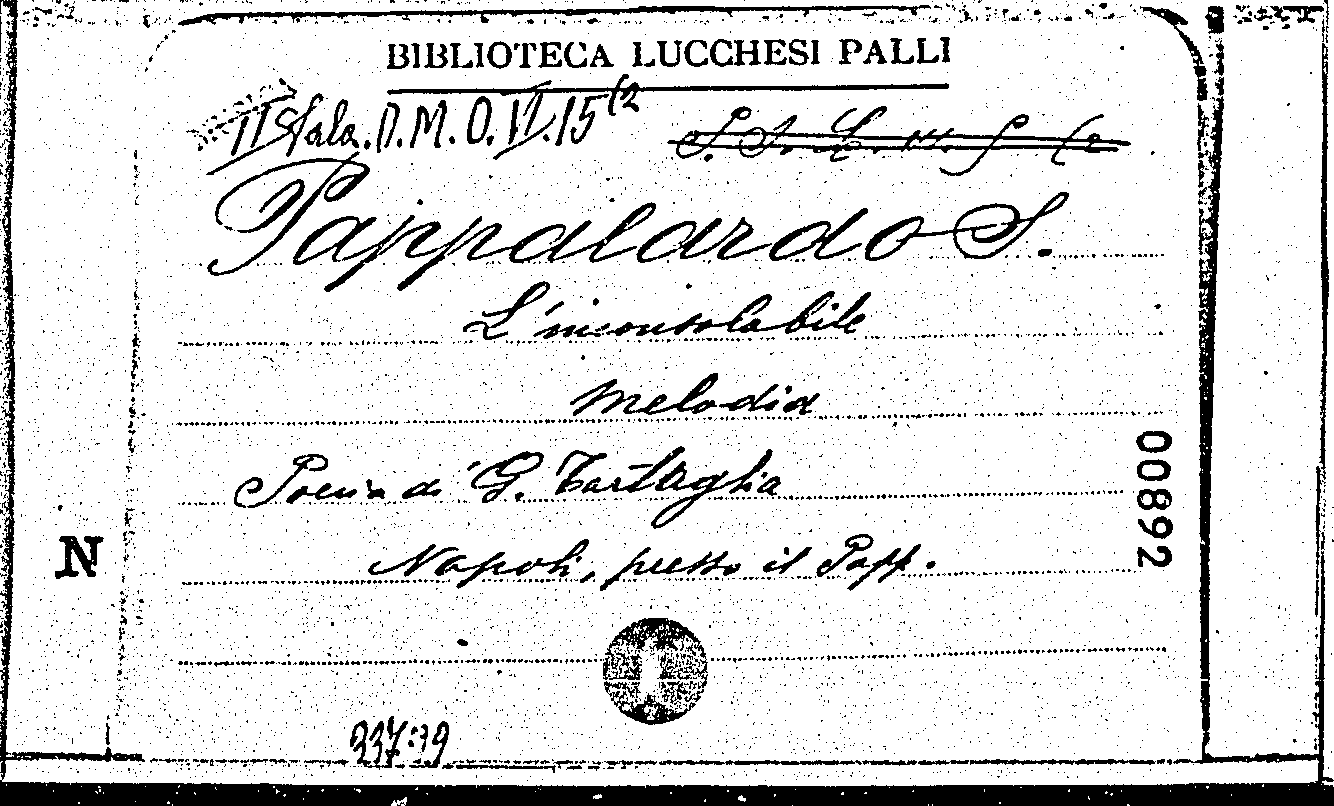 BIBLIOTECA LUCCHESI PALLI
II Sala. D.M.O. VI. 15 (2
Pappalardo S.
L'inconsolabile
Melodia
Poesia di G. Tartaglia
Napoli, presso il Papp.
00892
N